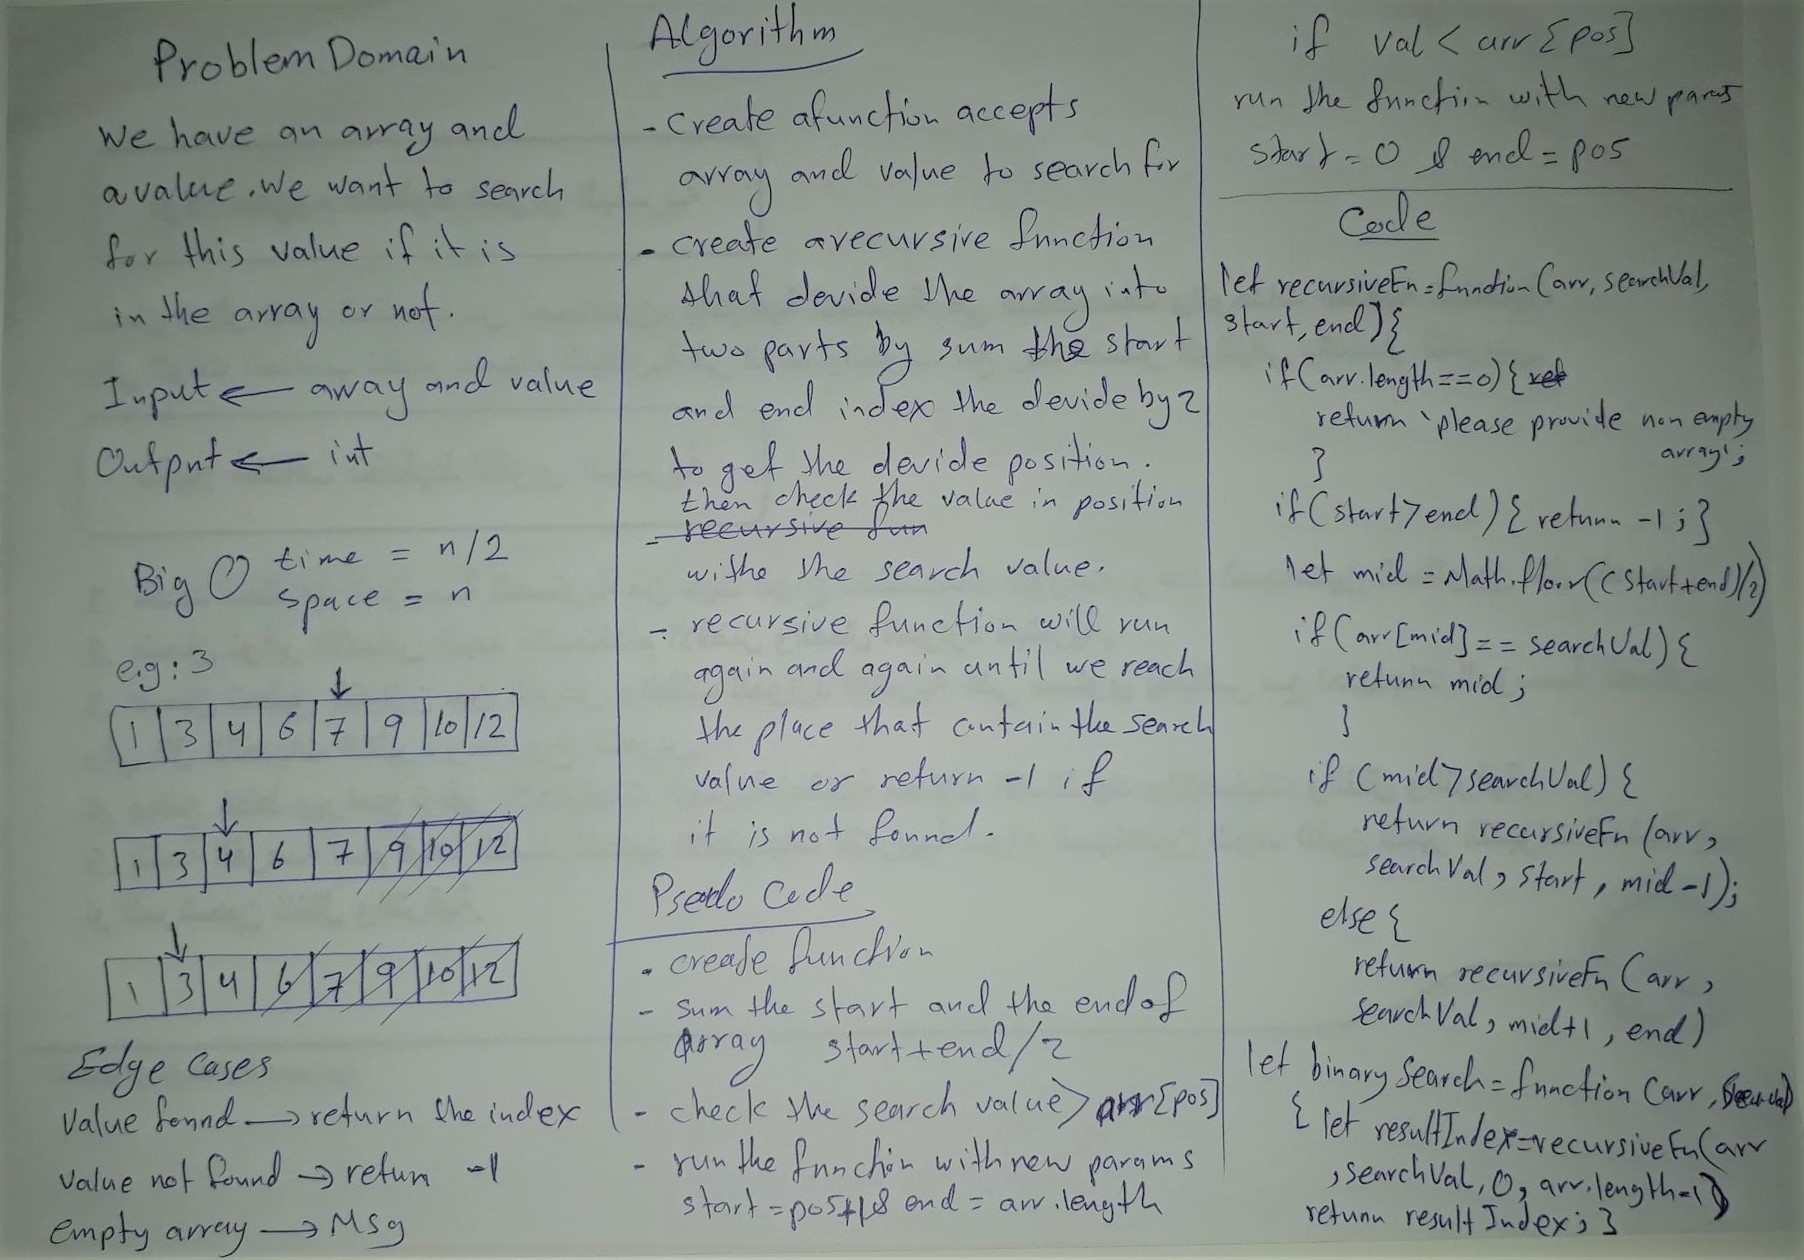 Problem Domain
We have an array and
a value. We want to search
for this value if it is
in the array or not.
Input ← array and value
Output ← int
Big O time = n/2
space = n
e.g: 3
↓
1 3 4 6 7 9 10 12
↓
1 3 4 6 7 9 10 12
↓
1 3 4 6 7 9 10 12
Edge Cases
Value found → return the index
value not found → return -1
empty array → Msg
Algorithm
- create a function accepts
array and value to search for
- create a recursive function
that devide the array into
two parts by sum the start
and end index the devide by 2
to get the devide position.
then check the value in position
- recursive fun
withe the search value.
- recursive function will run
again and again until we reach
the place that contain the search
value or return -1 if
it is not found.
Psedo Code
- create function
- sum the start and the end of
array start+end/2
- check the search value > arr[pos]
- run the function with new params
start = pos+1 & end = arr.length
if val < arr[pos]
run the function with new params
start = 0 & end = pos
Code
let recursiveFn = function (arr, searchVal,
start, end) {
if (arr.length == 0) { ret
return 'please provide non empty
array';
}
if (start > end) { return -1; }
let mid = Math.floor((start+end)/2)
if (arr[mid] == searchVal) {
return mid;
}
if (mid > searchVal) {
return recursiveFn (arr,
searchVal, start, mid -1);
else {
return recursiveFn (arr,
searchVal, mid+1, end)
let binarySearch = function (arr, searchVal)
{ let resultIndex = recursiveFn(arr
, searchVal, 0, arr.length-1)
return resultIndex; }